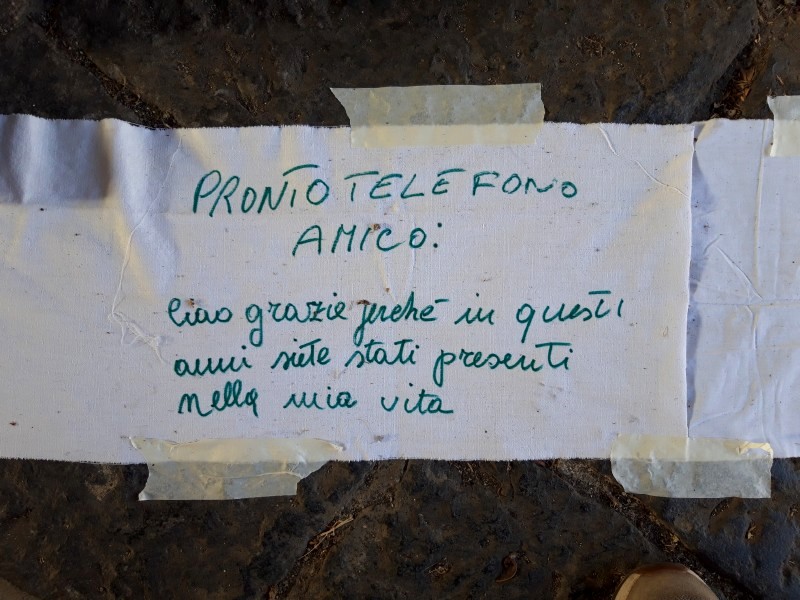 PRONTO TELEFONO
AMICO:
Ciao grazie perché in questi
anni siete stati presenti
nella mia vita